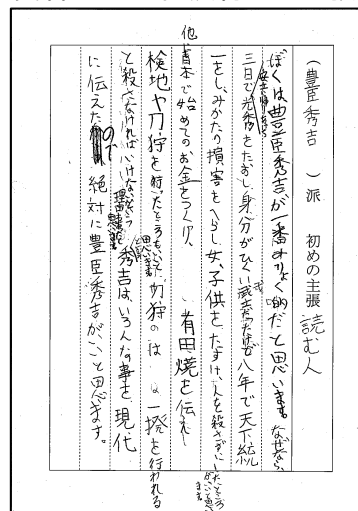 （豊臣秀吉　）派　初めの主張　読む人
ぼくは豊臣秀吉が一番みりょく的だと思います。なぜなら、
三日で光秀をたおし、身分がひくい武士だったけど八年で天下統
一をし、みかたの損害をへらし、女、子供をたすけ、人を殺さずにしたところ
がいいと思います
他 日本で始めてのお金をつくり、有田焼を伝え
検地や刀狩を行ったところもいいと思います 刀狩のは 一揆を行われる
と殺さなければいけないという理由 秀吉は、いろんな事を現代
に伝えたので 絶対に豊臣秀吉がいいと思います。